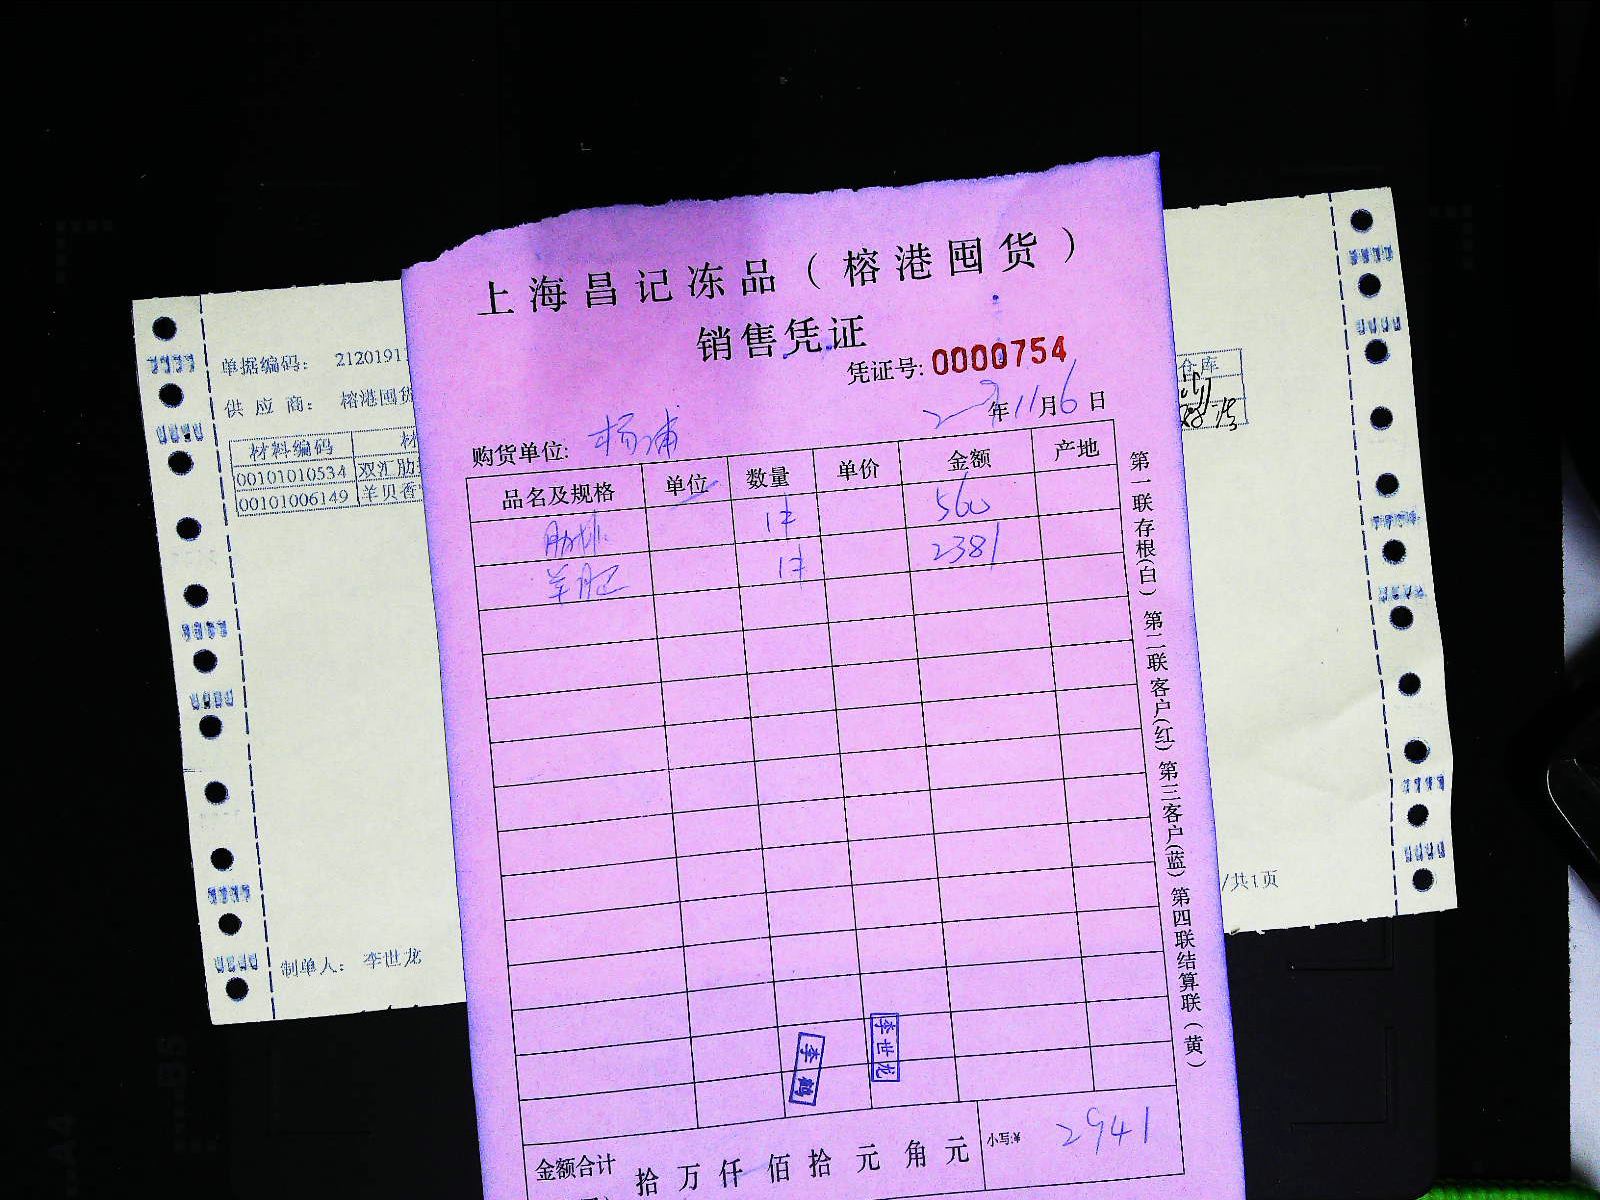 上海昌记冻品（榕港囤货）
销售凭证
凭证号: 0000754
年11月6日
购货单位: 杨浦
品名及规格 单位 数量 单价 金额 产地
肋排 1件 560
羊肥 1件 2381
金额合计 拾 万 仟 佰 拾 元 角 元
小写:¥ 2941
李鹤
李世龙
第一联存根(白) 第二联客户(红) 第三客户(蓝) 第四联结算联(黄)
单据编码: 2120191
供应商: 榕港囤货
材料编码
00101010534 双汇肋
00101006149 羊贝香
仓库
制单人: 李世龙
/共1页